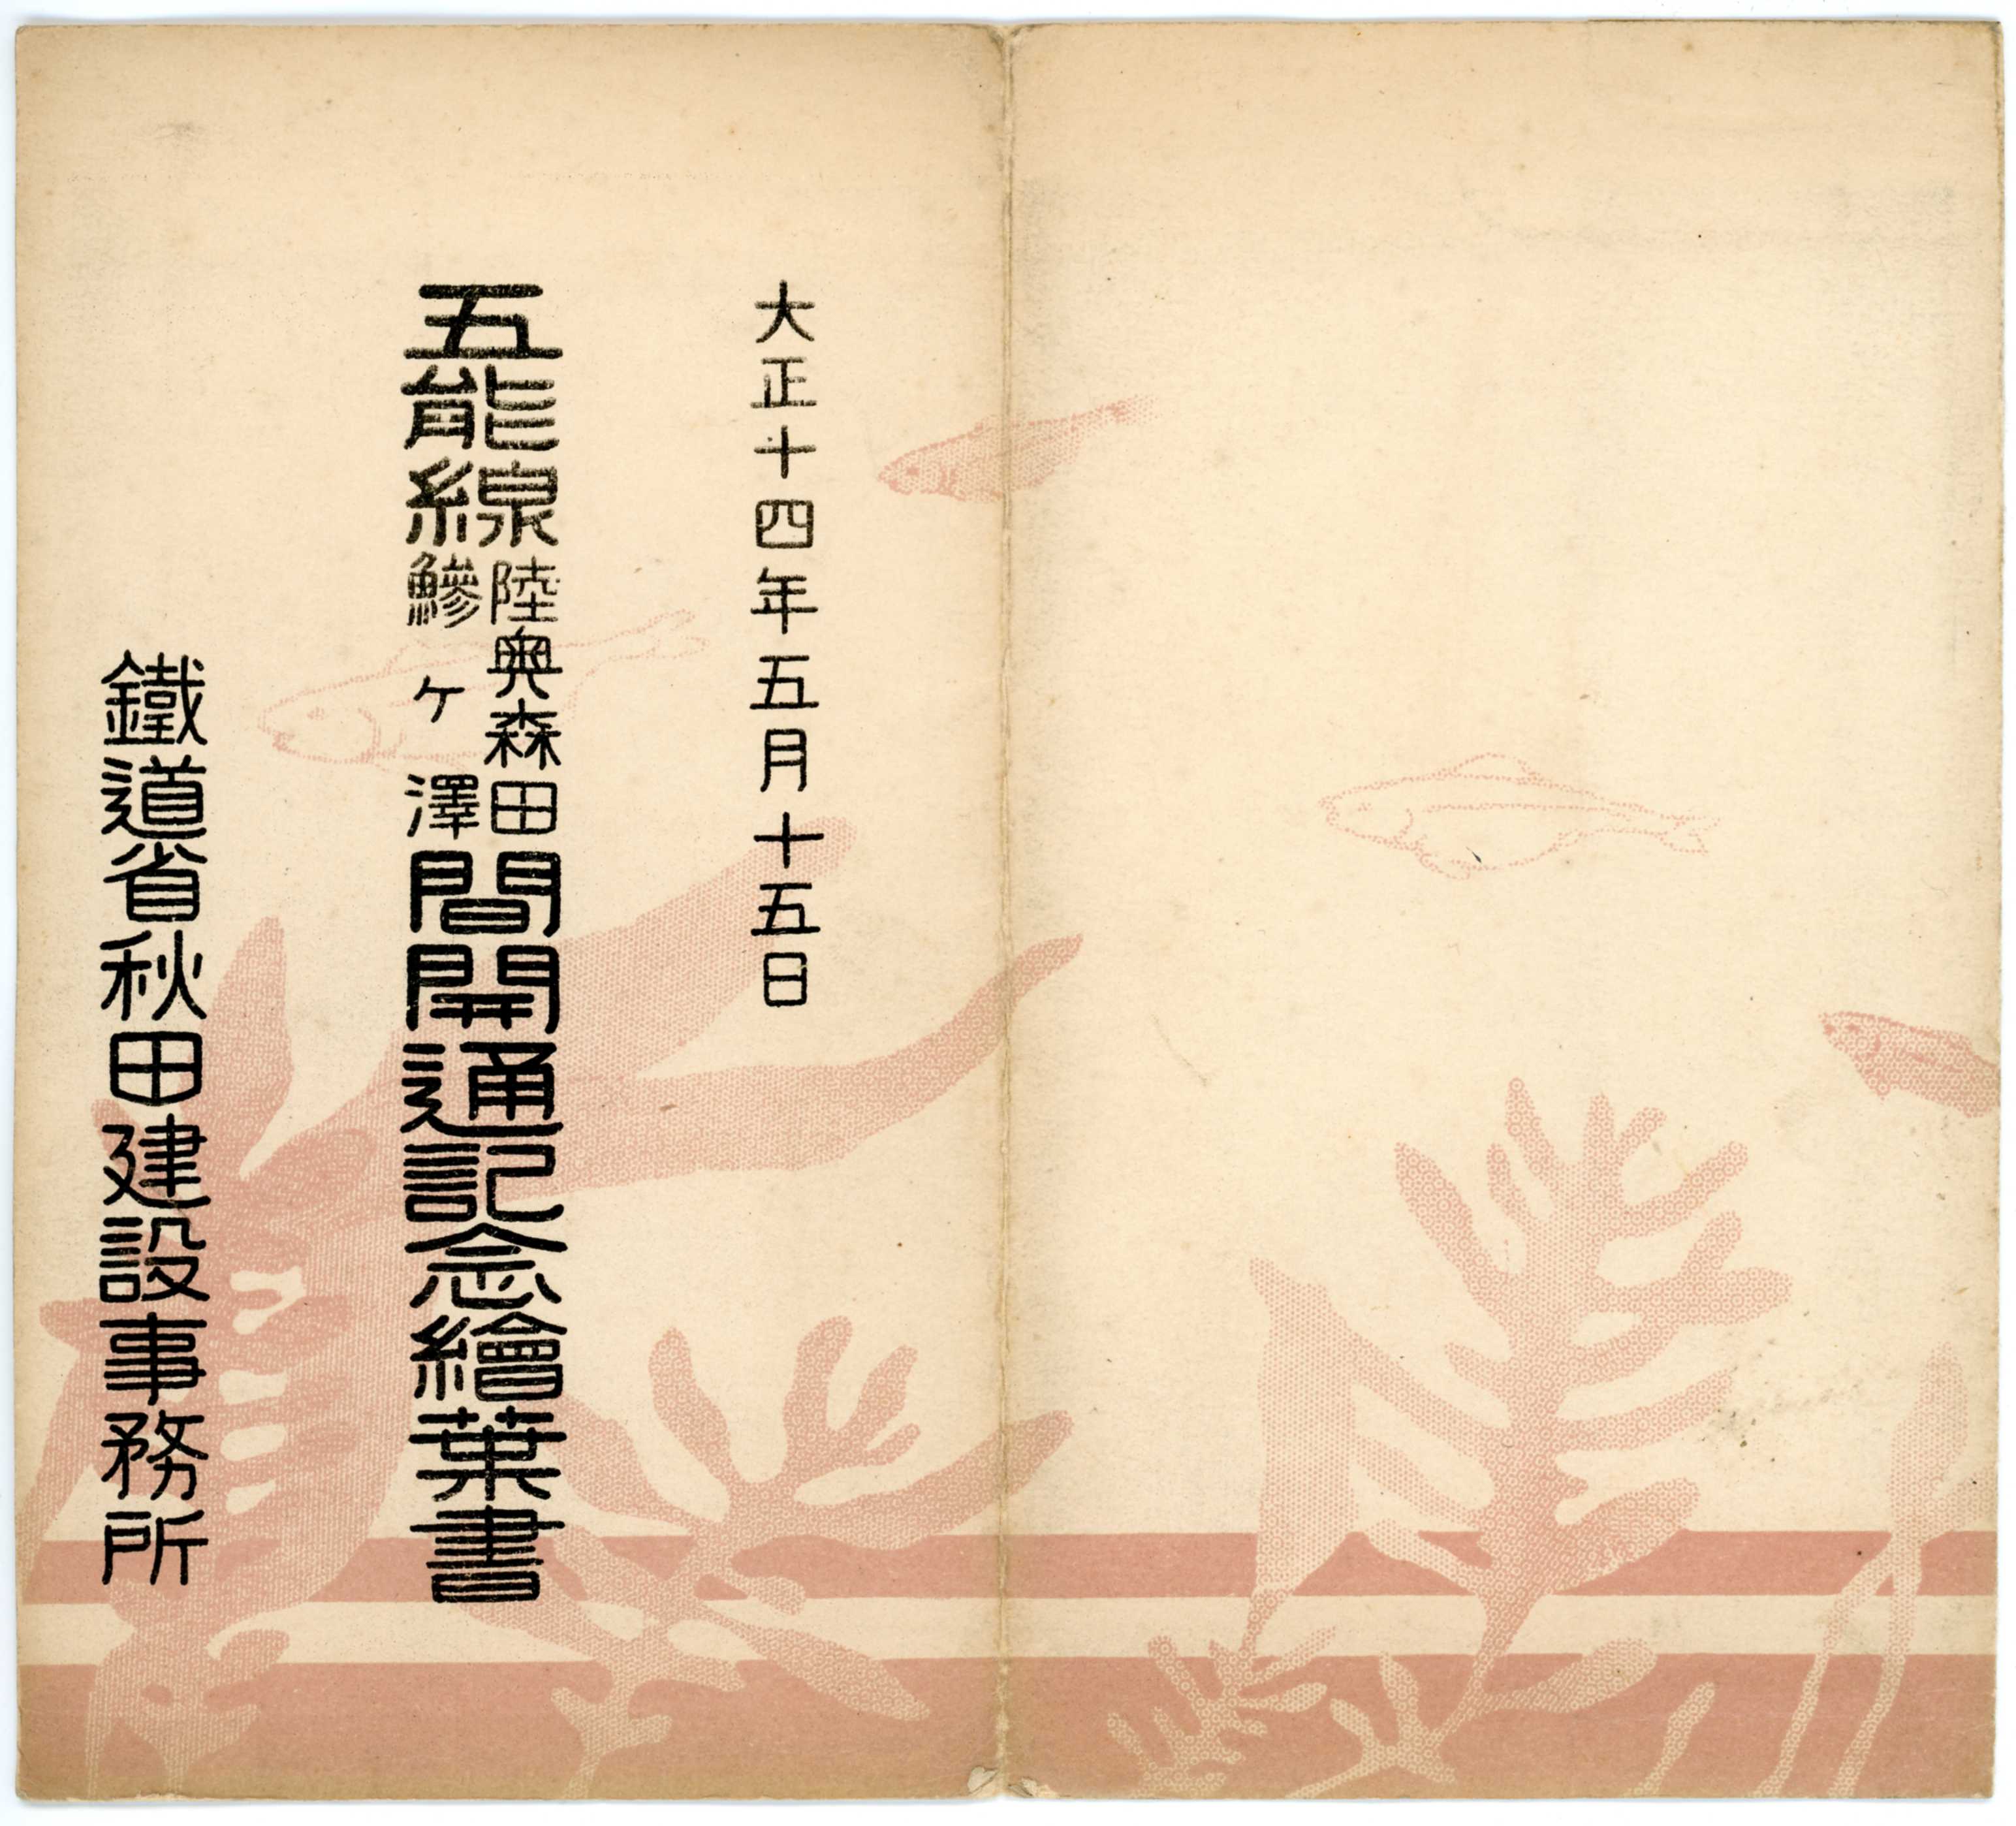 大正十四年五月十五日
五能線陸奥森田鰺ヶ澤間開通記念繪葉書
鐵道省秋田建設事務所